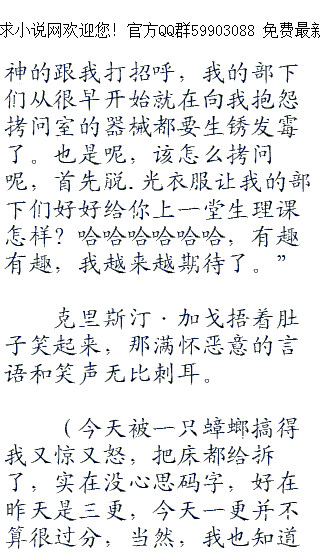 求小说网欢迎您！官方QQ群59903088 免费最新
神的跟我打招呼，我的部下
们从很早开始就在向我抱怨
拷问室的器械都要生锈发霉
了。也是呢，该怎么拷问
呢，首先脱.光衣服让我的部
下们好好给你上一堂生理课
怎样？哈哈哈哈哈哈，有趣
有趣，我越来越期待了。”
克里斯汀·加戈捂着肚
子笑起来，那满怀恶意的言
语和笑声无比刺耳。
（今天被一只蟑螂搞得
我又惊又怒，把床都给拆
了，实在没心思码字，好在
昨天是三更，今天一更并不
算很过分，当然，我也知道